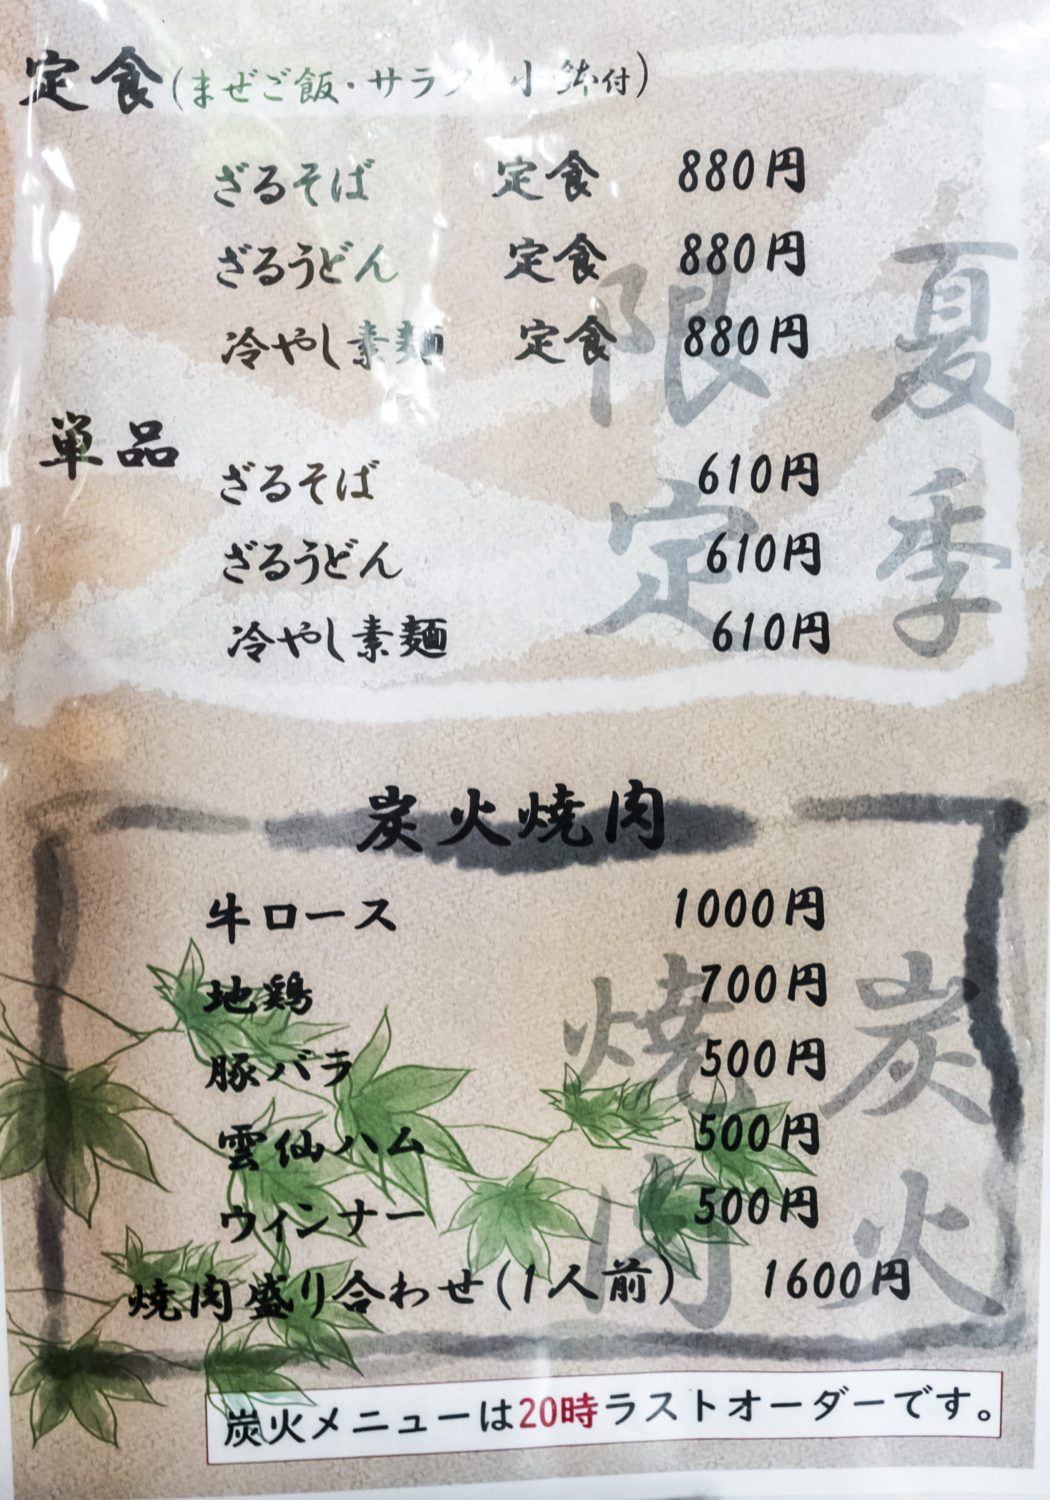 定食(まぜご飯・サラダ 小鉢付)
ざるそば 定食 880円
ざるうどん 定食 880円
冷やし素麺 定食 880円
夏季
限定
単品
ざるそば 610円
ざるうどん 610円
冷やし素麺 610円
炭火焼肉
牛ロース 1000円
地鶏 700円
豚バラ 500円
雲仙ハム 500円
ウィンナー 500円
焼肉盛り合わせ(1人前) 1600円
炭火
焼肉
炭火メニューは20時ラストオーダーです。